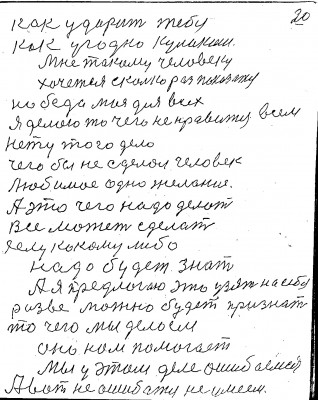 20
как ударит тебу
как угодно кулаком.
Мне такому человеку
хочется сколко раз покажу
но беда моя для всих
Я делаю то чего не нравиться всем
нету того дело
чего бы не сделал человек
Любимое одно желание.
А это чего надо делат
Все может сделат
телу какому либо
надо будет знат
А я предлогаю это узят на себу
разве можно будет признат
то чего мы делоем
оно ном помогает
Мы у этом деле ошибаемся
А вот не ошибатся не умеем.